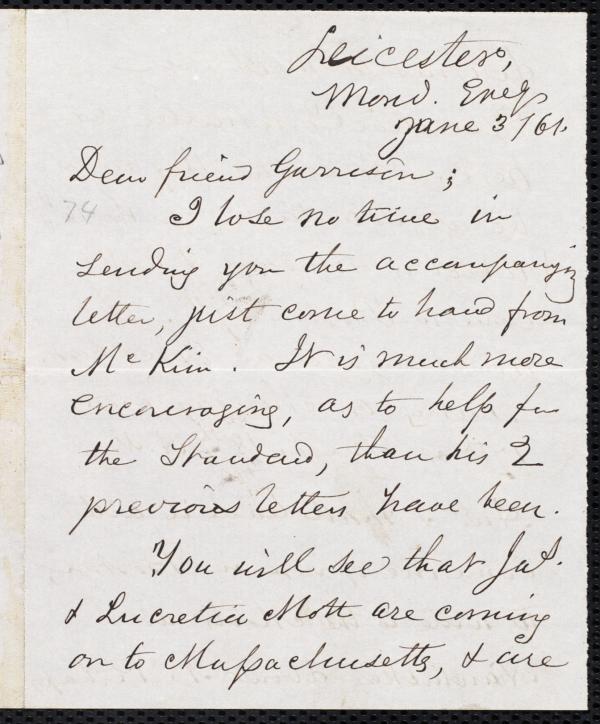 Leicester,
Mond. Eveg.
June 3/61.
Dear friend Garrison;
74
I lose no time in
sending you the accompanying
letter, just come to hand from
McKim. It is much more
encouraging, as to help for
the Standard, than his 2
previous letters have been.
You will see that Jas.
& Lucretia Mott are coming
on to Massachusetts, & are